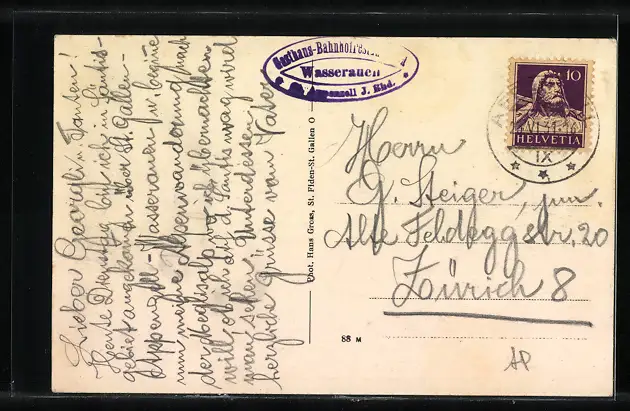 Lieber Georg u. Tanten!
Heute Dienstag bin ich in Säntis-
gebiet angekommen über St. Gallen-
Appenzell-Wasserauen u. beginne
nun meine Alpenwanderung nach
der Meglisalp wo ich übernachten
will ob ich auf d. Säntis mag wird
man sehen. Unterdessen
herzliche Grüsse vom Vater
Gasthaus-Bahnhofrest
Wasserauen
Appenzell J. Rhd.
Phot. Hans Gross, St. Fiden-St. Gallen O
10
HELVETIA
IX
Herrn
G. Steiger, jun.
Alte Feldeggstr. 20
Zürich 8
88 M